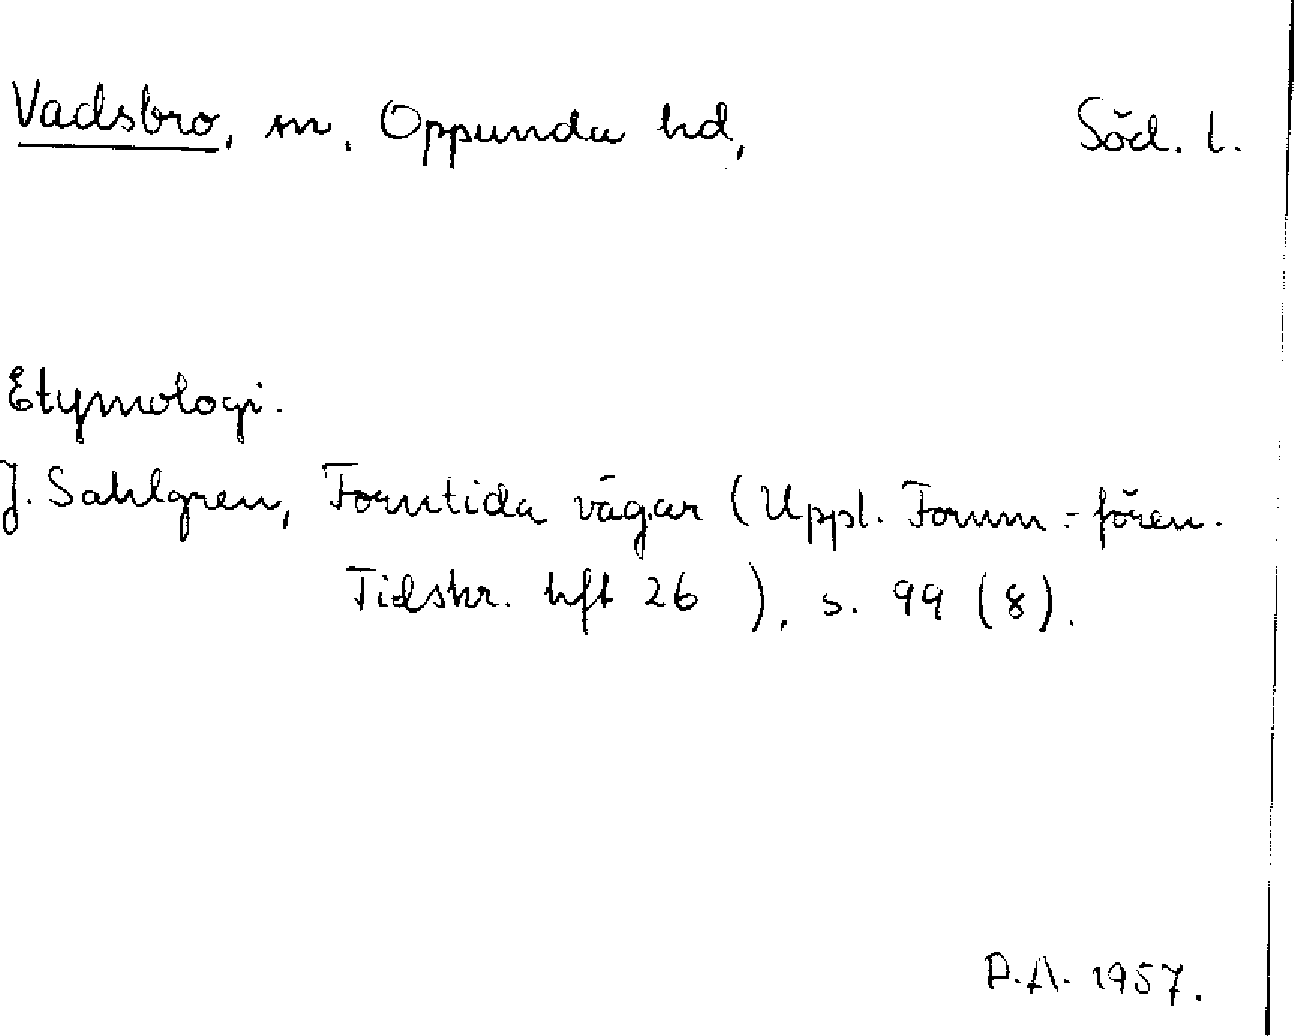 Vadsbro, sn. Oppunda hd, Söd. l.
Etymologi.
J. Sahlgren, Forntida vägar (Uppl. Fornm.-fören.
Tidskr. hft 26 ), s. 99 (8).
D.A. 1957.